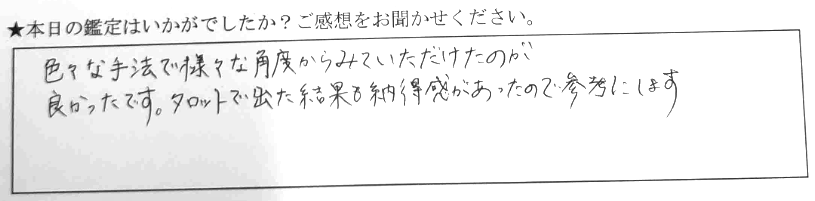 ★本日の鑑定はいかがでしたか？ご感想をお聞かせください。
色々な手法で様々な角度からみていただけたのが
良かったです。タロットで出た結果も納得感があったので参考にします